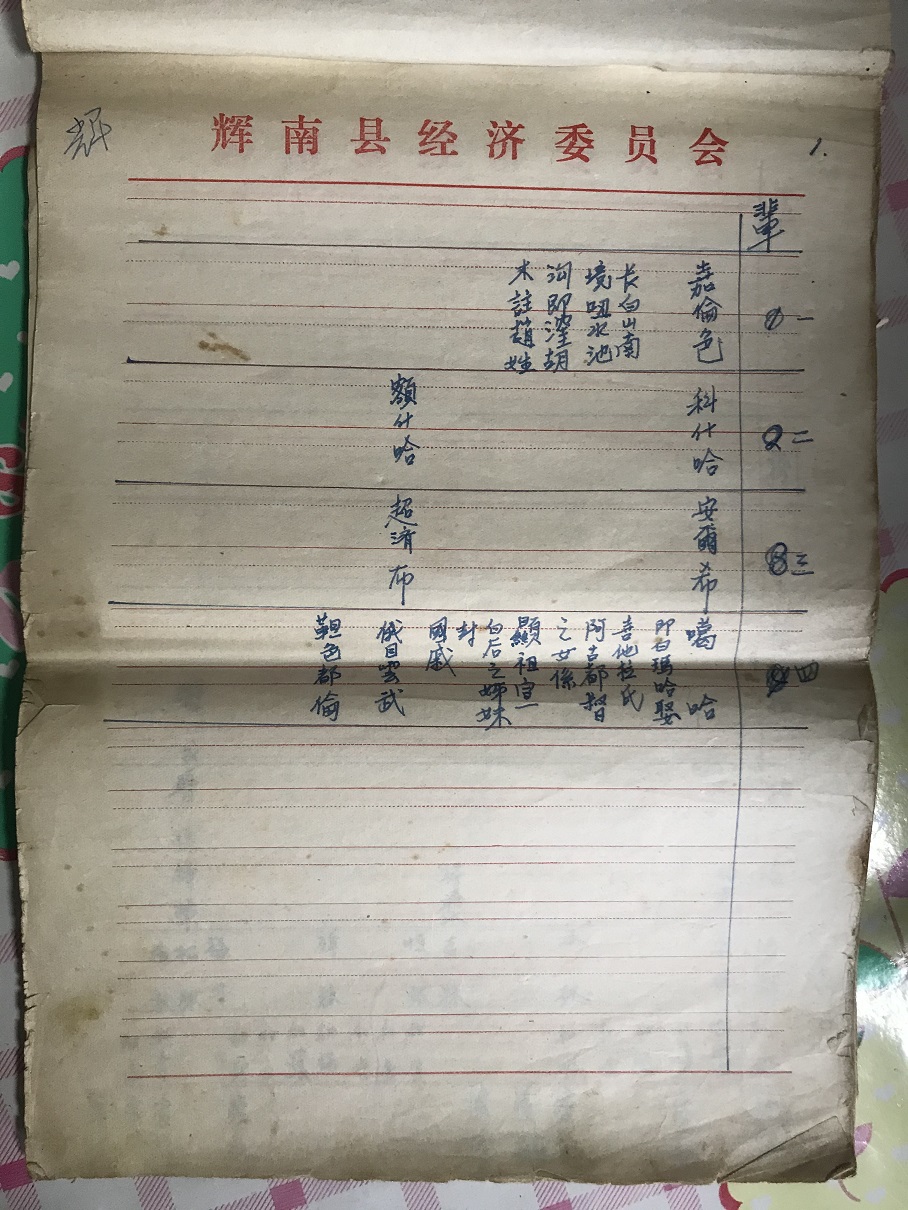 辉南县经济委员会
1.
輩
一
嘉倫色
长白山南
境 水池
沟即 胡
木註趙姓
二
科什哈
額什哈
三
安爾希
超濟布
四
噶哈
即白瑪哈娶
喜他拉氏
阿古都督
之女係
顯祖宣
后之姊妹
封
國戚
俄 雲武
色都倫